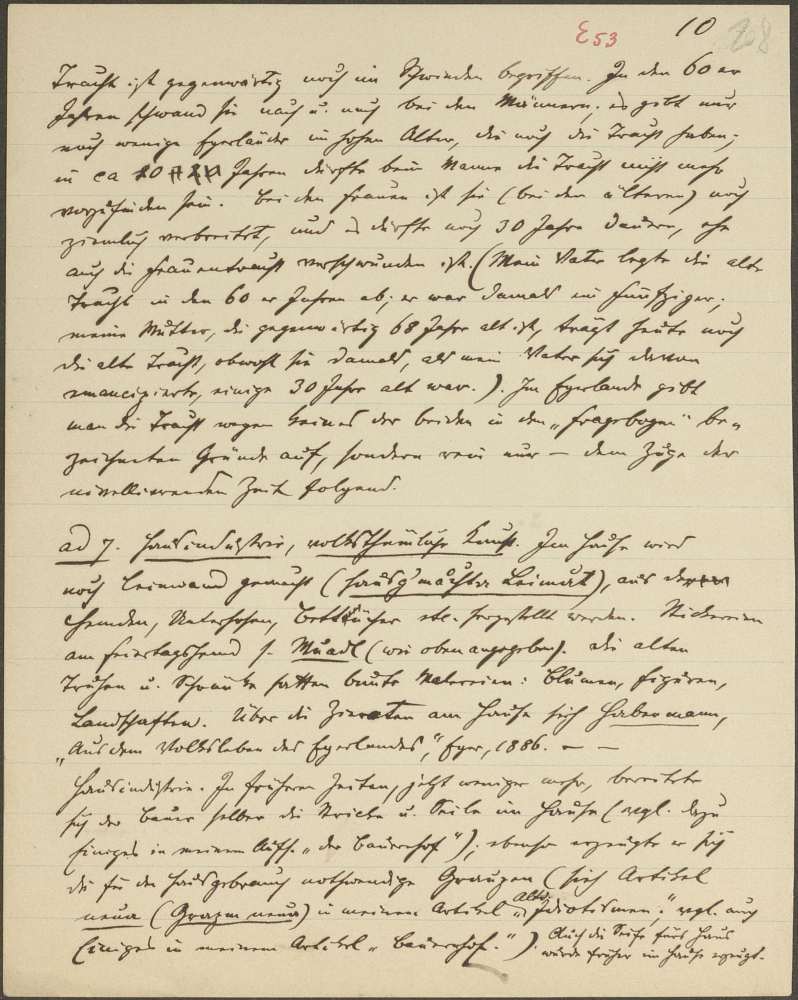 E53 10 208
Tracht ist gegenwärtig noch im Schwinden begriffen. In den 60er
Jahren schwand sie nach u. nach bei den Männern; es gibt nur
noch wenige Egerländer im hohen Alter, die noch die Tracht haben;
in ca 10 Jahren dürfte beim Manne die Tracht nicht mehr
vorzufinden sein. Bei den Frauen ist sie (bei den älteren) noch
ziemlich verbreitet, und es dürfte noch 30 Jahre dauern, ehe
auch die Frauentracht verschwunden ist. (Mein Vater legte die alte
Tracht in den 60er Jahren ab; er war damals ein Fünfziger;
meine Mutter, die gegenwärtig 68 Jahre alt ist, trägt heute noch
die alte Tracht, obwohl sie damals, als mein Vater sich davon
emancipierte, einige 30 Jahre alt war.). Im Egerlande gibt
man die Tracht wegen keines der beiden in den „Fragebogen" be-
zeichneten Gründe auf, sondern rein nur – dem Zuge der
nivellierenden Zeit folgend.
ad 7. Hausindustrie, volksthümliche Kunst. Im Hause wird
noch Leinwand gemacht (hausg'machta Leimat), aus
Hemden, Unterhosen, Betttücher etc. hergestellt werden. Stickereien
am Feiertagshemd s. Muadl (wie oben angegeben). Die alten
Truhen u. Schränke hatten bunte Malereien: Blumen, Figuren,
Landschaften. Über die Zieraten am Hause sieh Habermann,
„Aus dem Volksleben des Egerlandes", Eger, 1886. – –
Hausindustrie. In früheren Zeiten, jetzt weniger mehr, bereitete
sich der Bauer selber die Stricke u. Seile im Hause (vgl. dazu
Einiges in meinem Aufs. „der Bauernhof"); ebenso erzeugte er sich
die für den Hausgebrauch nothwendige Graupen (sieh Artikel
neua (Grazm neua) in meinem Artikel „Idiotismen." vgl. auch
Einiges in meinem Artikel „Bauernhof."). Auch die Seife fürs Haus
wurde früher im Hause erzeugt.